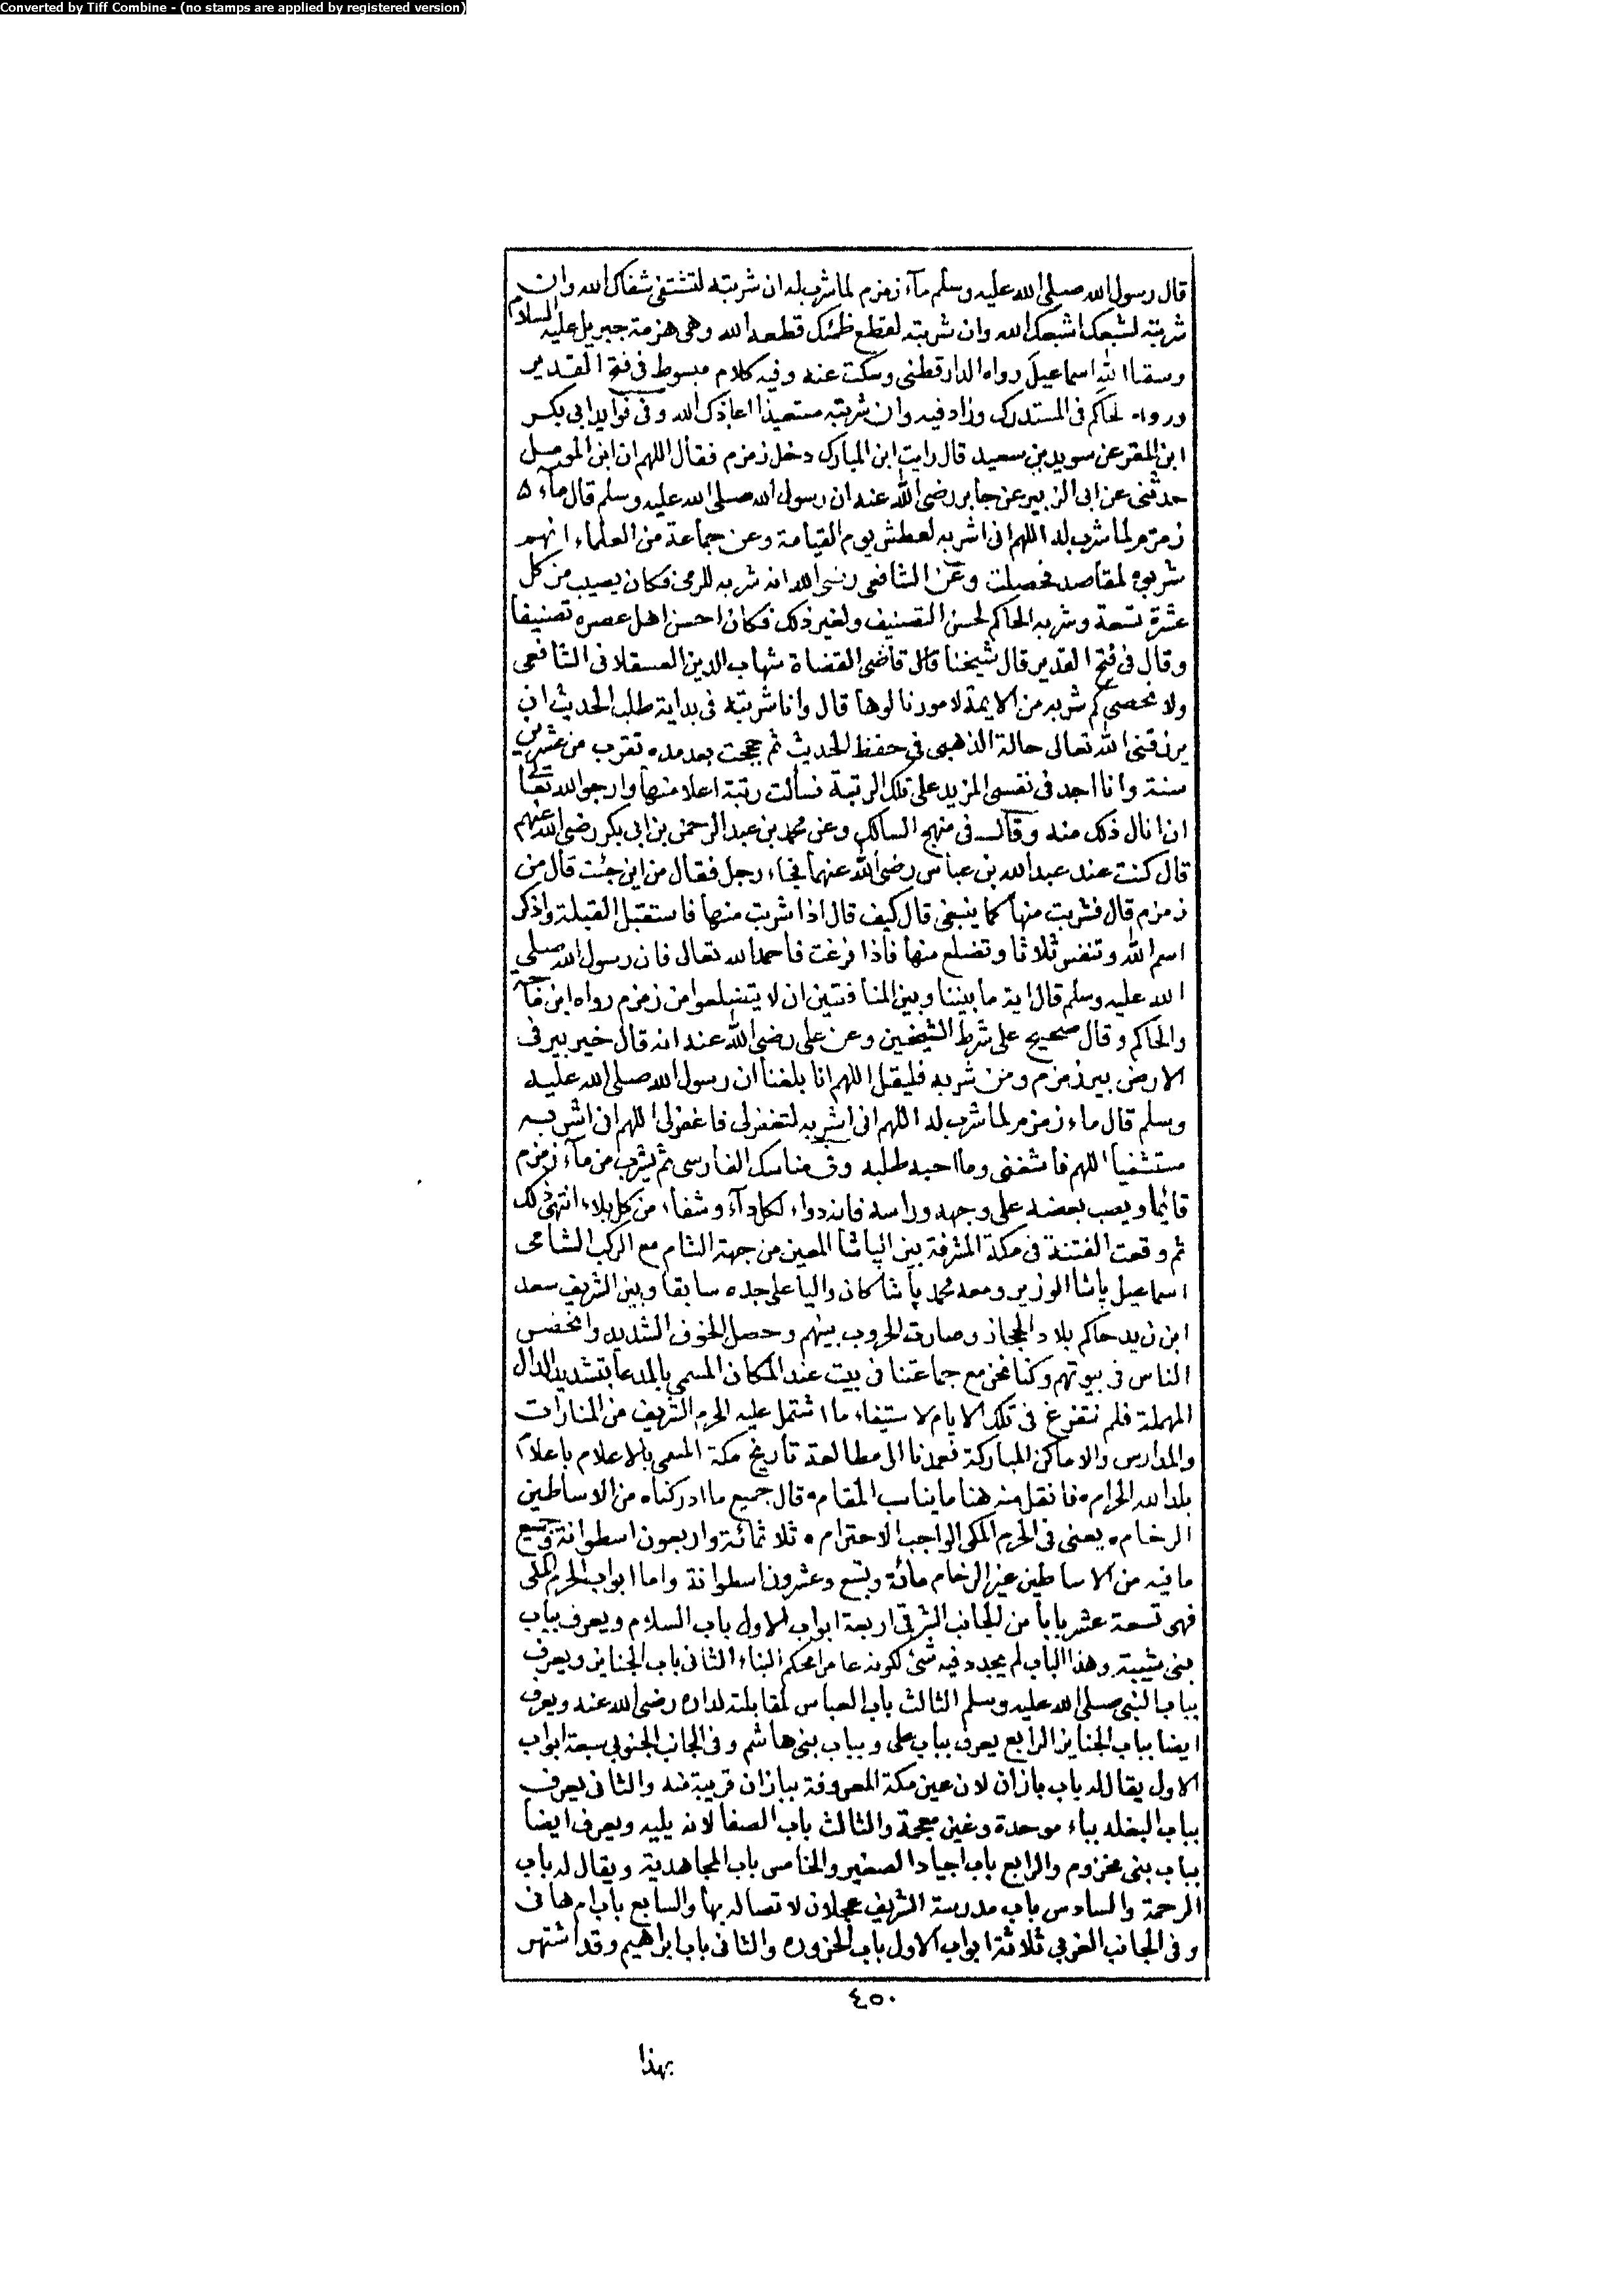 Converted by Tiff Combine - (no stamps are applied by registered version)
قال رسول الله صلى الله عليه وسلم مآء زمزم لما شرب له ان شربته لتشتفى شفاك الله وان
شربته لشبعك اشبعك الله وان شربته لقطع ظمئك قطعه الله وهى هزمة جبريل عليه السلام
وسقيا الله اسماعيل رواه الدارقطنى وسكت عنه وفيه كلام مبسوط فى فتح القدير
ورواه الحاكم فى المستدرك وزاد فيه وان شربته مستعيذا اعاذك الله وفى فوايد ابى بكر
ابن المقر عن سويد بن سعيد قال رايت ابن المبارك دخل زمزم فقال اللهم ان ابن الموصل
حدثنى عن ابى الزبير عن جابر رضى الله عنه ان رسول الله صلى الله عليه وسلم قال مآء ه
زمزم لما شرب له اللهم انى اشربه لعطش يوم القيامة وعن جماعة من العلماء انهم
شربوه لمقاصد فحصلت وعن الشافعى رضى الله انه شربه للرمى فكان يصيب من كل
عشرة تسعة وشربه الحاكم لحسن التصنيف ولغير ذلك فكان احسن اهل عصره تصنيفا
وقال فى فتح القدير قال شيخنا قال قاضى القضاة شهاب الدين العسقلانى الشافعى
ولا نحصى كم شربه من الايمة لامور نالوها قال وانا شربته فى بداية طلب الحديث ان
يرزقنى الله تعالى حالة الذهبى فى حفظ الحديث ثم حججت بعد مده تقرب من عشرين
سنة وانا اجد فى نفسى المزيد على تلك الرتبة فسألت رتبة اعلا منها وارجو الله تعالى
ان انال ذلك منه وقال فى منهج السالك وعن محمد بن عبد الرحمن بن ابى بكر رضى الله عنهم
قال كنت عند عبد الله بن عباس رضى الله عنهما فجاء رجل فقال من اين جئت قال من
زمزم قال فشربت منها كما ينبغى قال كيف قال اذا شربت منها فاستقبل القبلة واذكر
اسم الله وتنفس ثلاثا وتضلع منها فاذا فرغت فاحمد الله تعالى فان رسول الله صلى
الله عليه وسلم قال اية ما بيننا وبين المنافقين ان لا يتضلعوا من زمزم رواه ابن ماجة
والحاكم وقال صحيح على شرط الشيخين وعن على رضى الله عنه انه قال خير بير فى
الارض بير زمزم ومن شربه فليقل اللهم انا بلغنا ان رسول الله صلى الله عليه
وسلم قال ماء زمزم لما شرب له اللهم انى اشربه لتغفر لى فاغفر لى اللهم انى اشربه
مستشفيا اللهم فاشفنى وما احبه طلبه وفى مناسك الفارسى ثم يشرب من مآء زمزم
قائما ويصب بعضه على وجهه وراسه فانه دواء لكل دآء وشفاء من كل بلاء انتهى ذلك
ثم وقعت الفتنة فى مكة المشرفة بين الباشا المعين من جهة الشام مع الركب الشامى
اسماعيل باشا الوزير ومعه محمد باشا كان واليا على جده سابقا وبين الشريف سعد
ابن زيد حاكم بلاد الحجاز وصارت الحروب بينهم وحصل الخوف الشديد وانحضر
الناس فى بيوتهم وكنا نحن مع جماعتنا فى بيت عند المكان المسمى بالمدعا بتشديد الدال
المهملة فلم نتفرغ فى تلك الايام لاستيفاء ما اشتمل عليه الحرم الشريف من المنارات
والمدارس والاماكن المباركة فعمدنا الى مطالعة تأريخ مكة المسمى بالاعلام باعلام
بلد الله الحرام ٠ فانقل منه هنا ما يناسب المقام ٠ قال جميع ما ادركناه من الاساطين
الرخام ٠ يعنى فى الحرم المكى الواجب الاحترام ٠ ثلاثمائة واربعون اسطوانة وجميع
ما فيه من الاساطين غير الرخام مائة وتسع وعشرون اسطوانة واما ابواب الحرم المكى
فهى تسعة عشر بابا من الجانب الشرقى اربعة ابواب الاول باب السلام ويعرف بباب
بنى شيبة وهذا الباب لم يجدد فيه شئ لكونه عامرا محكم البناء الثانى باب الجنايز ويعرف
بباب النبى صلى الله عليه وسلم الثالث باب العباس لمقابلته لداره رضى الله عنه ويعرف
ايضا بباب الجنايز الرابع يعرف بباب على وبباب بنى هاشم وفى الجانب الجنوبى سبعة ابواب
الاول يقال له باب بازان لان عين مكة المعروفة ببازان قريبة منه والثانى يعرف
بباب البغله بباء موحدة وغين معجمة والثالث باب الصفا لانه يليه ويعرف ايضا
بباب بنى مخزوم والرابع باب اجياد الصغير والخامس باب المجاهدية ويقال له باب
الرحمة والسادس باب مدرسة الشريف عجلان لاتصاله بها والسابع باب ام هانى
وفى الجانب الغربى ثلاثة ابواب الاول باب الحزوره والثانى باب ابراهيم وقد اشتهر
٤٥٠
بهذا